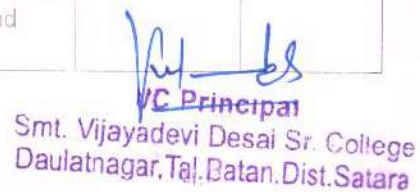 nd
I/C Principal
Smt. Vijayadevi Desai Sr. College
Daulatnagar, Tal. Patan. Dist. Satara